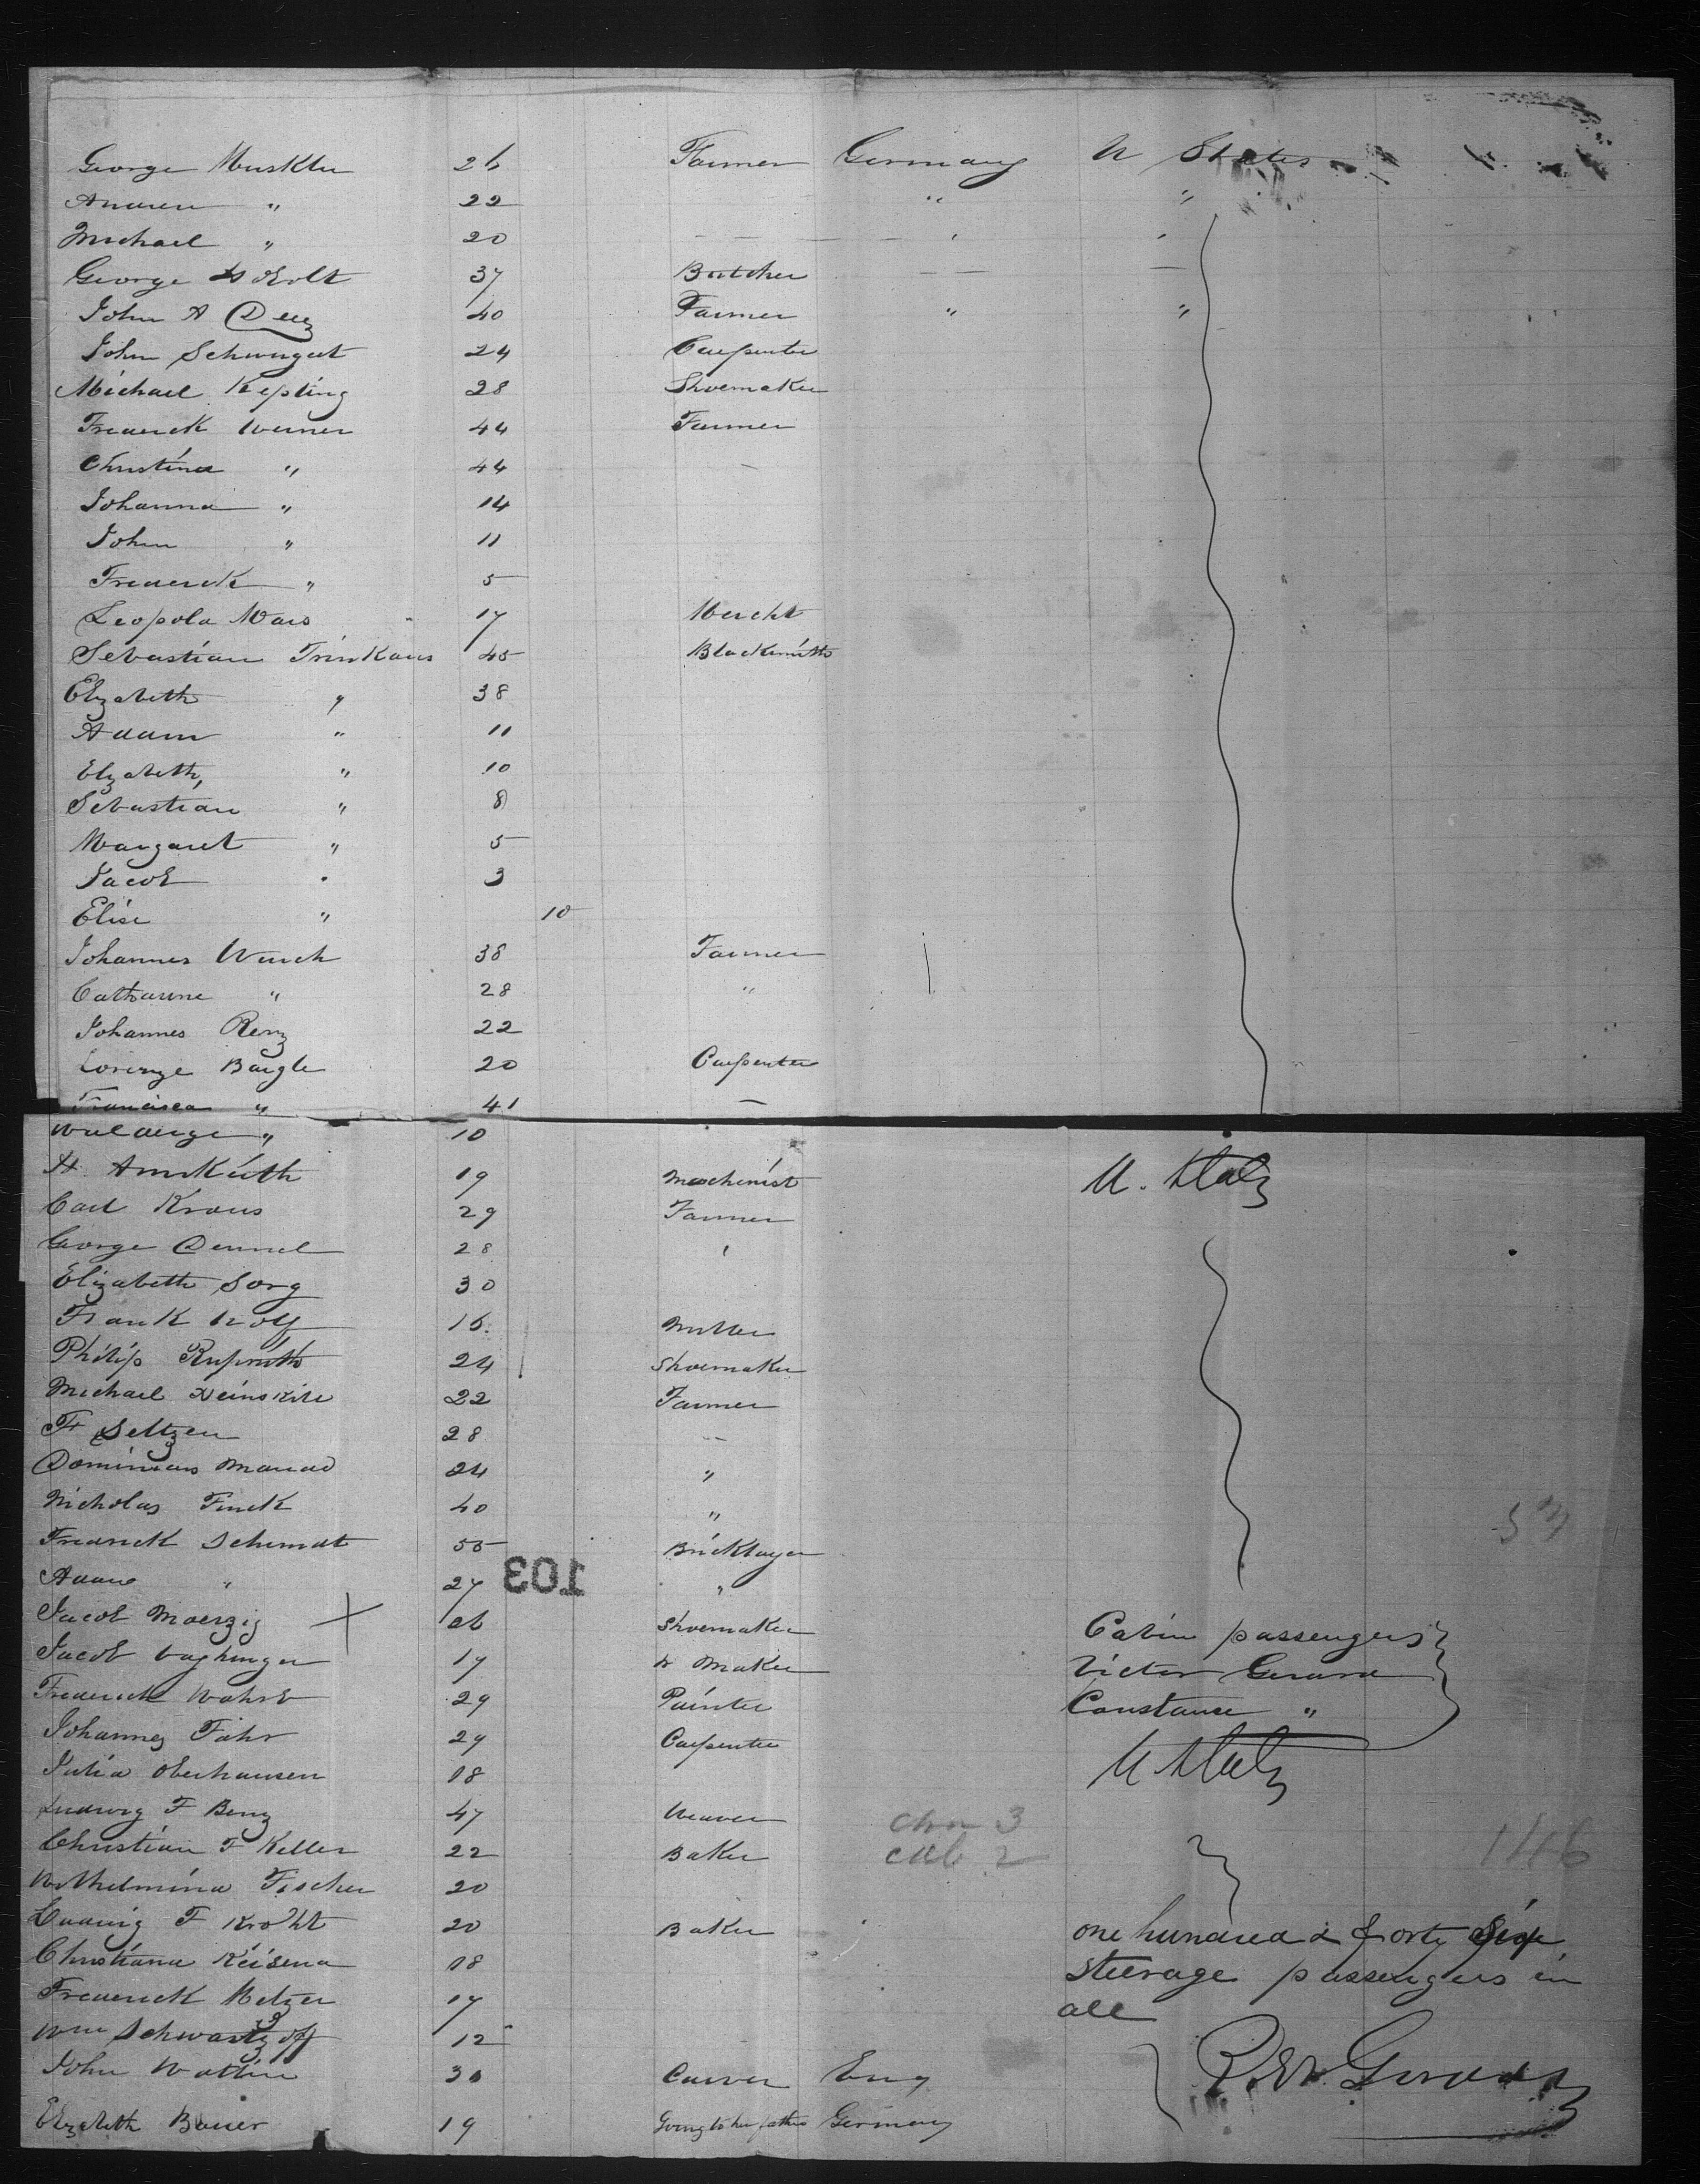 George Muskler 26 Farmer Germany U States
Andrew " 22 " "
Michael " 20 " "
George Holt 37 Butcher — — —
John A 40 Farmer " "
John Schwugut 24 Carpenter
Michael Kepling 28 Shoemaker
Frederick Werner 44 Farmer
Christina " 44 —
Johanna " 14
John " 11
Frederick " 5
Leopold Mars 17 Mercht
Sebastian Trinkaus 45 Blacksmith
Elizabeth " 38
Adam " 11
Elizabeth " 10
Sebastian " 8
Margaret " 5
Jacob " 3
Elise " 10
Johannes 38 Farmer
Catharine " 28 "
Johannes Renz 22
Lorenze Baigle 20 Carpenter
Francisca " 41 —
" 10
H 19 Machinist U. States
Carl Kraus 29 Farmer
George Demmel 28 "
Elizabeth Sorg 30
Frank Wolf 16 Miller
Philip Ruprith 24 Shoemaker
Michael 22 Farmer
Fr Seltzer 28 "
24 "
Nicholas Finck 40 "
53
Fredrick Schmidt 55 Bricklayer
Adam " 27 "
103
Jacob Moerzig X 26 Shoemaker
Cabin passengers
Jacob Vaghinger 17 Maker
Victor Gerard
Frederick 29 Painter
Constance "
Johannes Fahr 29 Carpenter
U States
Julia Oberhausen 18
Ludwig F Benz 47 Weaver
3
Christian F Keller 22 Baker
2
146
Wilhelmina Fischer 20
Ludwig F Kroht 20 Baker
one hundred & forty Six
Christiana Keisena 18
Steerage passengers in
Frederick Metzer 17
all
Wm Schwartzoff 12
John Wattin 30 Carver Eng
Elizabeth Bauer 19 Going to her father Germany